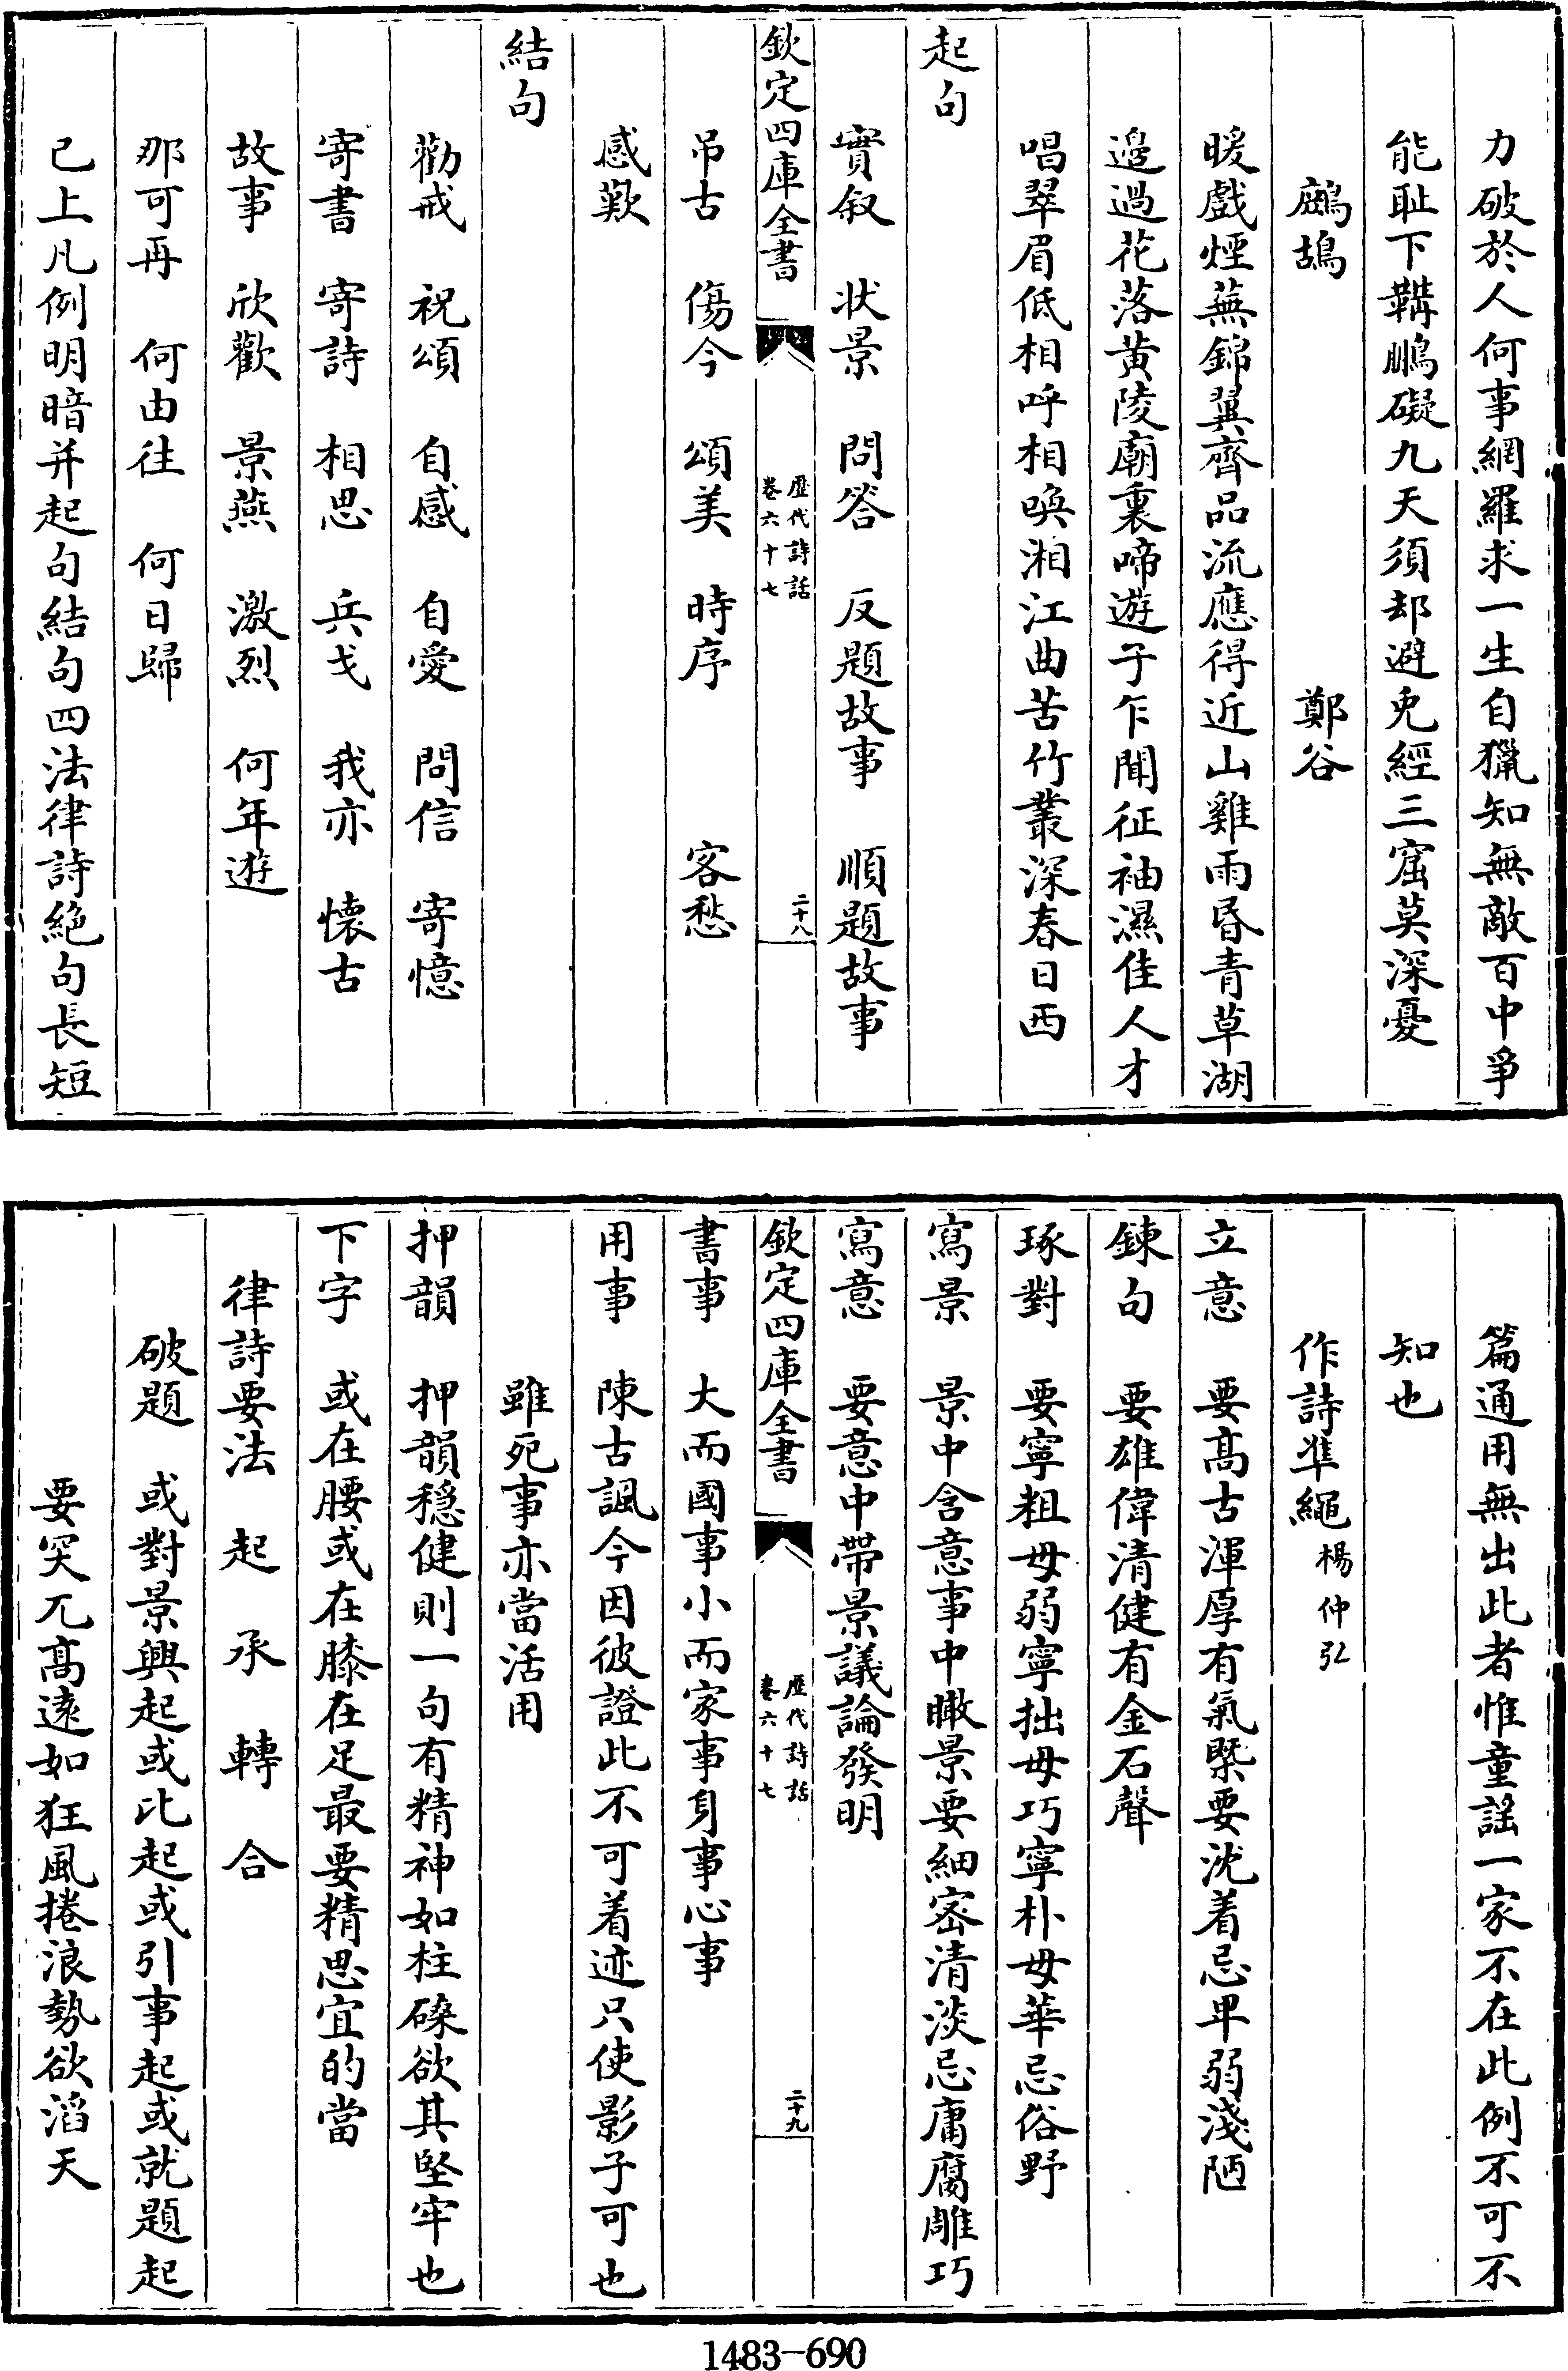 力破於人何事網羅求一生自獵知無敵百中爭
能恥下鞲鵬礙九天須却避兎經三窟莫深憂
鷓鴣　鄭谷
暖戲煙蕪錦翼齊品流應得近山雞雨昏青草湖
邉過花落黄陵廟裏啼遊子乍聞征袖濕佳人才
唱翠眉低相呼相喚湘江曲苦竹叢深春日西
起句
實叙　狀景　問答　反題故事　順題故事
欽定四庫全書
歴代詩話
卷六十七
二十八
吊古　傷今　頌美　時序　客愁
感歎
結句
勸戒　祝頌　自感　自愛　問信　寄憶
寄書　寄詩　相思　兵戈　我亦　懐古
故事　欣歡　景燕　激烈　何年遊
那可再　何由往　何日歸
已上凡例明暗并起句結句四法律詩絶句長短
篇通用無出此者惟童謡一家不在此例不可不
知也
作詩凖繩楊仲弘
立意　要髙古渾厚有氣槩要沈着忌卑弱淺陋
鍊句　要雄偉清健有金石聲
琢對　要寧粗毋弱寧拙毋巧寧朴毋華忌俗野
寫景　景中含意事中瞰景要細宻清淡忌庸腐雕巧
寫意　要意中帶景議論發明
欽定四庫全書
歴代詩話
卷六十七
二十九
書事　大而國事小而家事身事心事
用事　陳古諷今因彼證此不可着迹只使影子可也
雖死事亦當活用
押韻　押韻穏健則一句有精神如柱磉欲其堅牢也
下字　或在腰或在膝在足最要精思宜的當
律詩要法　起　承　轉　合
破題　或對景興起或比起或引事起或就題起
要突兀髙遠如狂風捲浪勢欲滔天
1483-690